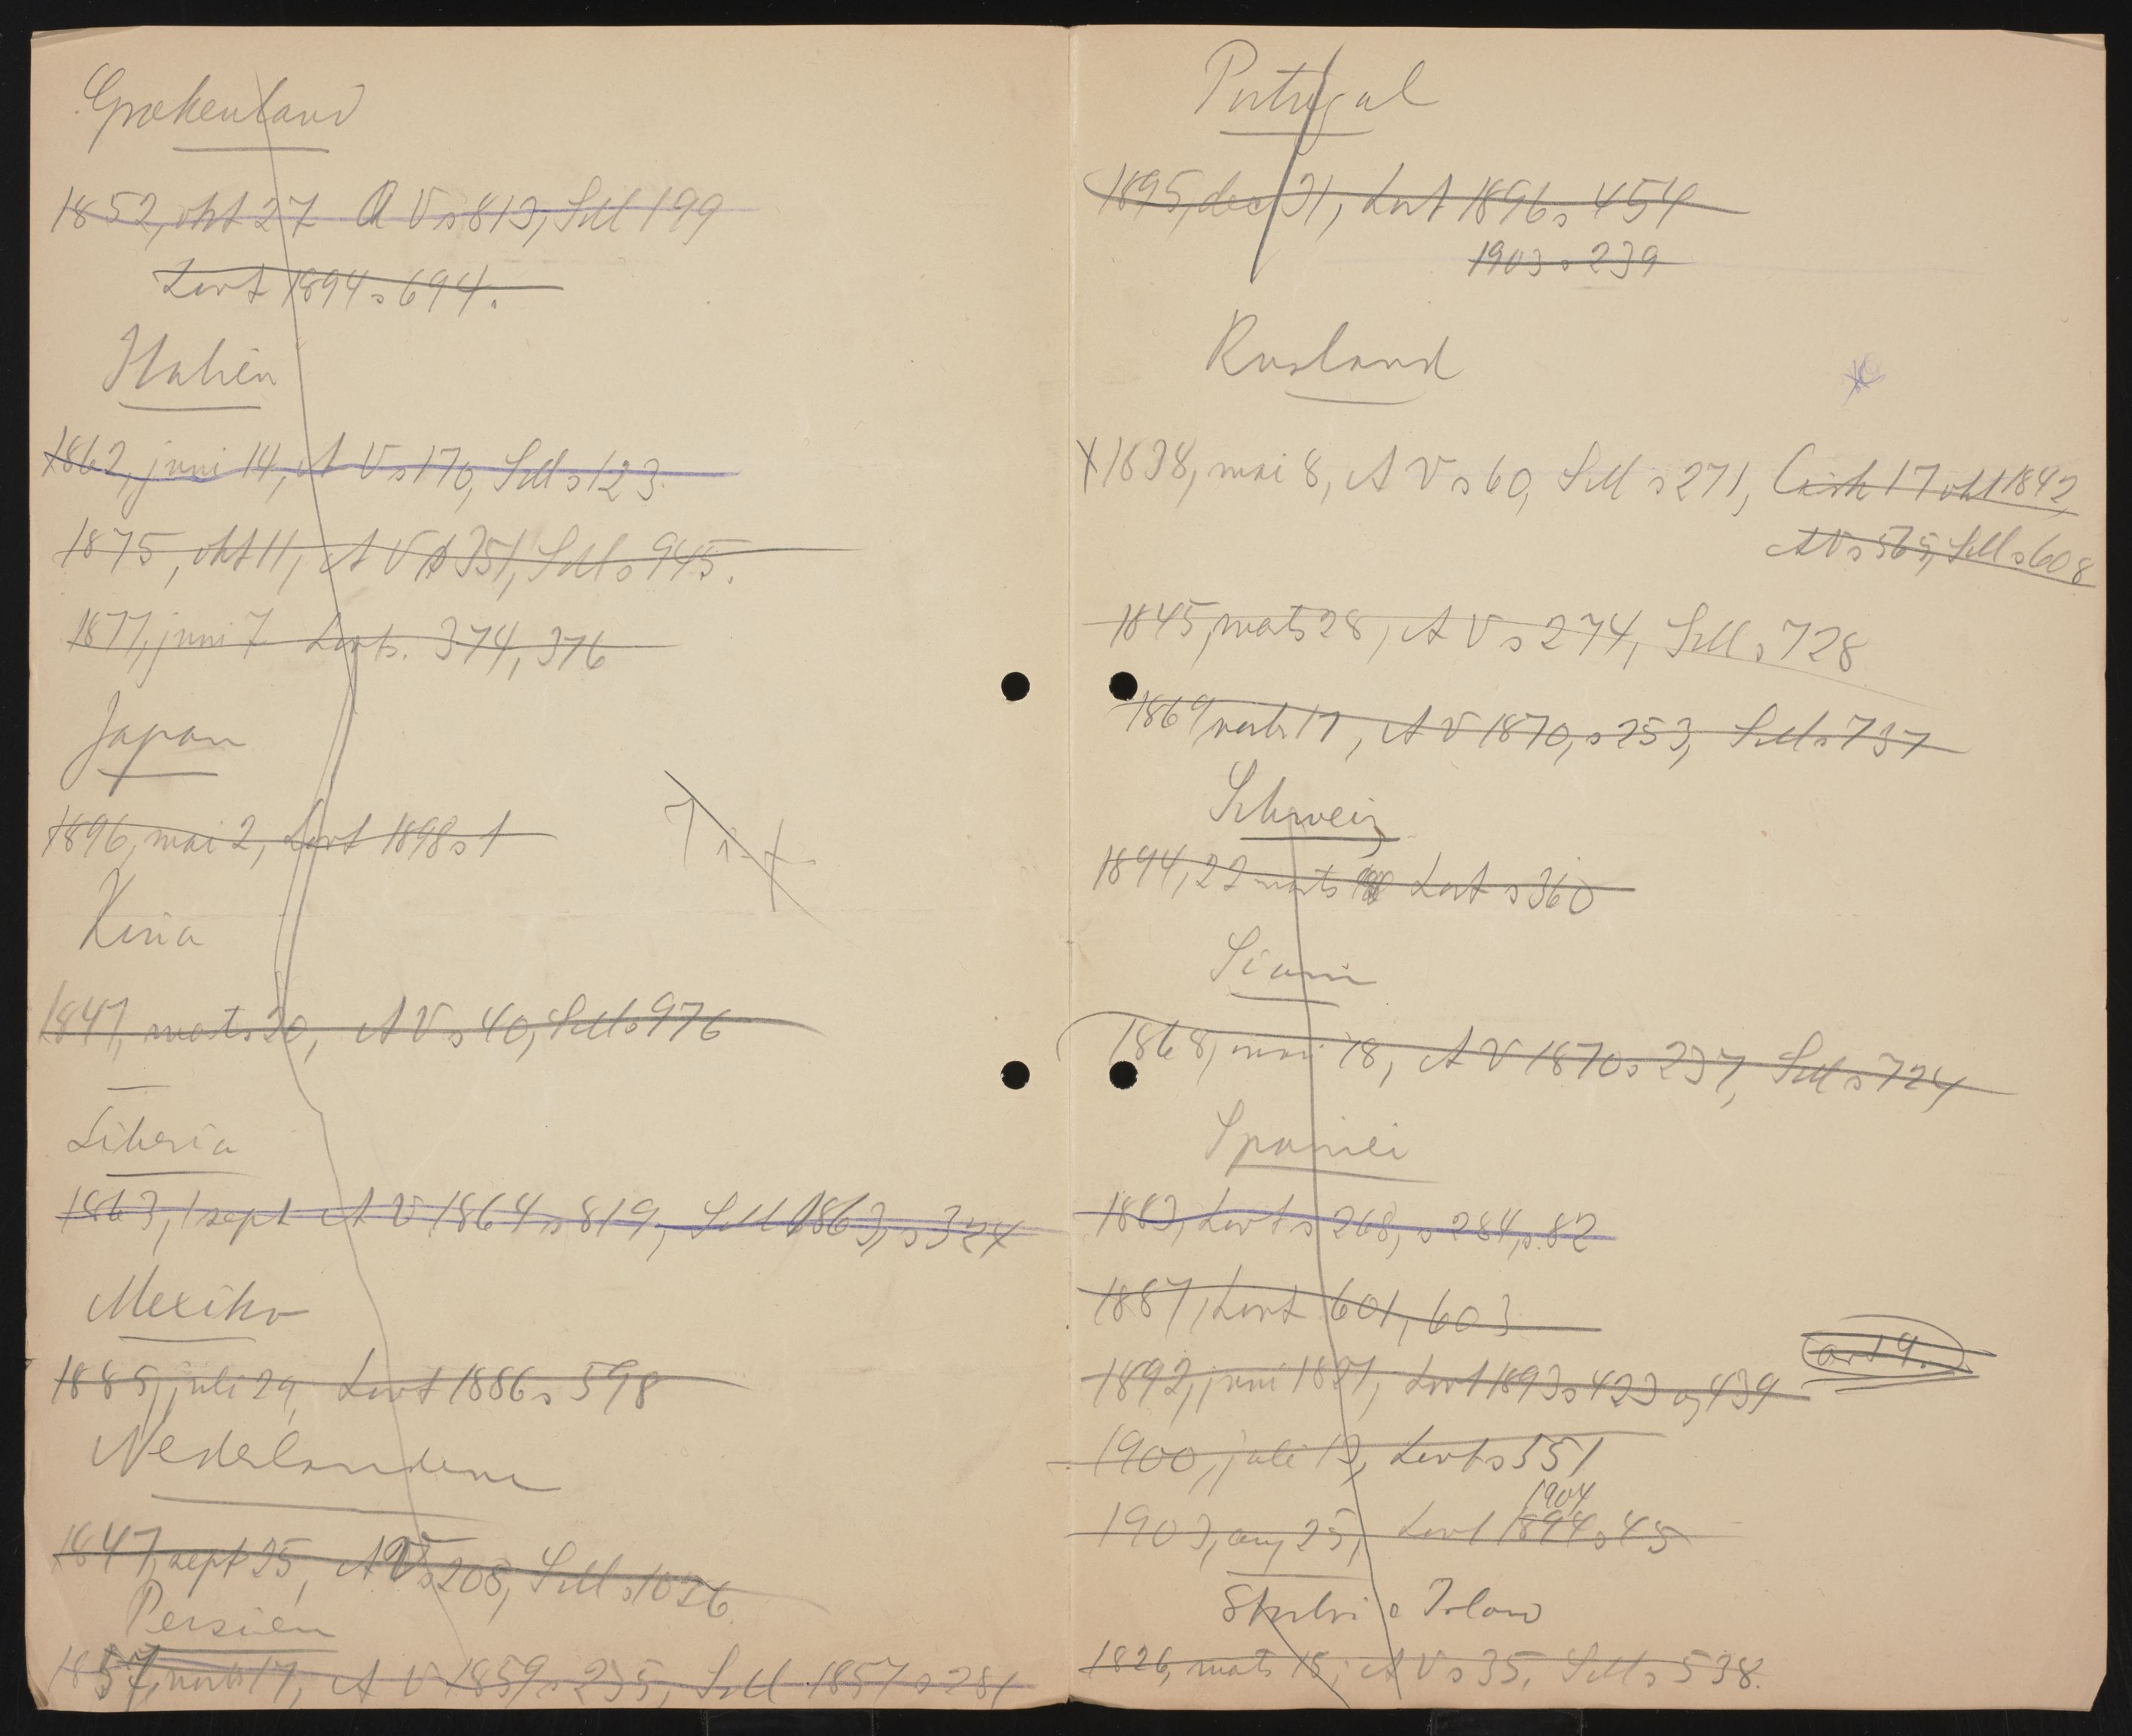 Grækenland
1852, okt 27 A V s 813, Sell 199
Lovt 1894 s 694.
Italien
1862, juni 14, A V s 170, Sell s 123.
1875, okt 11, A V s 351, Sell s 945.
1877, juni 7 Lovts. 374, 376
Japan
1896, mai 2, Lovt 1898 s 1
Kina
1847, marts 20, A V s 40, Sell s 976
Liberia
1863, 1 sept A V 1864 s 819, Sell 1863, s 324
Mexiko
1885, juli 29, Lovt 1886 s 598
Nederlandene
1847, sept 25, A V s 208, Sell s 1026
Persien
1857, novbr 17, A V 1859 s 235, Sell 1857 s 281
Portugal
1895, dec 31, Lovt 1896 s 454
1903 s 239
Rusland
X 1838, mai 8, A V s 60, Sell s 271, Cirk 17 okt 1842,
A V s 565, Sell s 608
1845, marts 28, A V s 274, Sell s 728
1869 novbr 17, A V 1870, s 253, Sell s 737
Schweiz
1894, 22 marts Lovt s 360
Siam
1868, mai 18, A V 1870 s 237, Sell s 724
Spanien
1883, Lovt s 268, s 284, s. 82
1887, Lovt 601, 603
art 9.
1892, juni 1821, Lovt 1893 s 423 og 439
1900, juli 13, Lovt s 551
1904
1903, aug 25, Lovt 1894 s 45
Storbr. o Irland
1826, marts 15, A V s 35, Sell s 538.